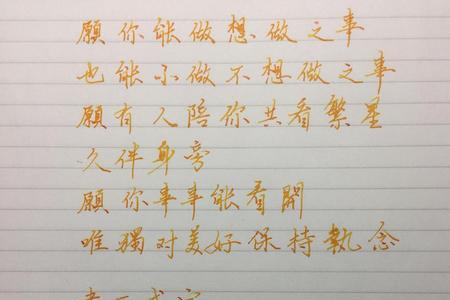 願你能做想做之事
也能不做不想做之事
願有人陪你共看繁星
久伴身旁
願你事事能看開
唯獨对美好保持執念